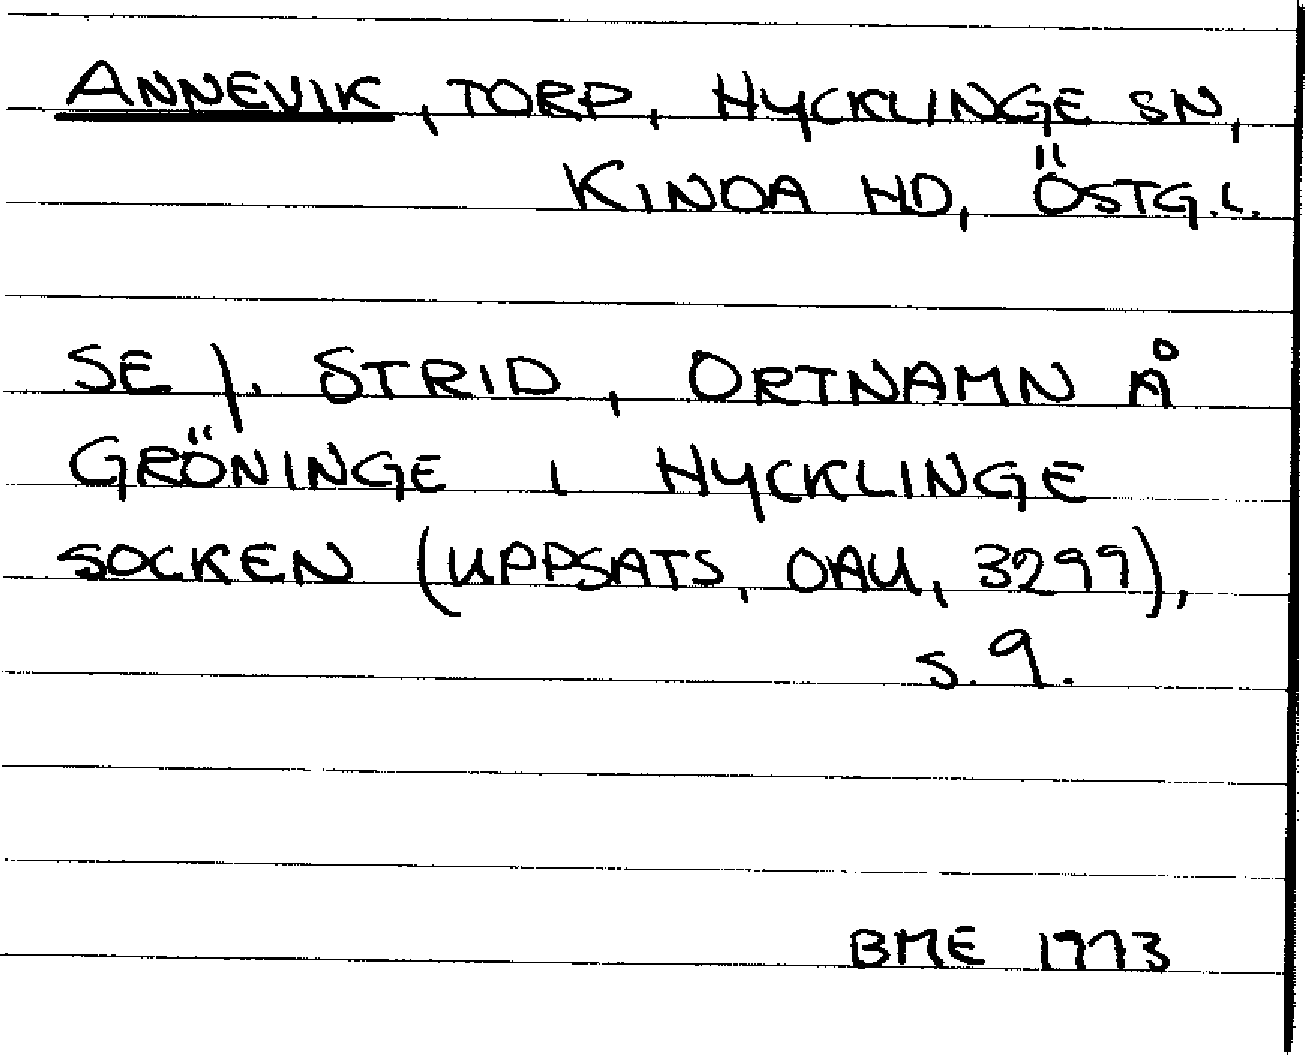 ANNEVIK, TORP, HYCKLINGE SN,
KINDA HD, ÖSTG.L.
SE J. STRID, ORTNAMN Å
GRÖNINGE I HYCKLINGE
SOCKEN (UPPSATS, OAU, 3299),
S. 9.
BME 1973